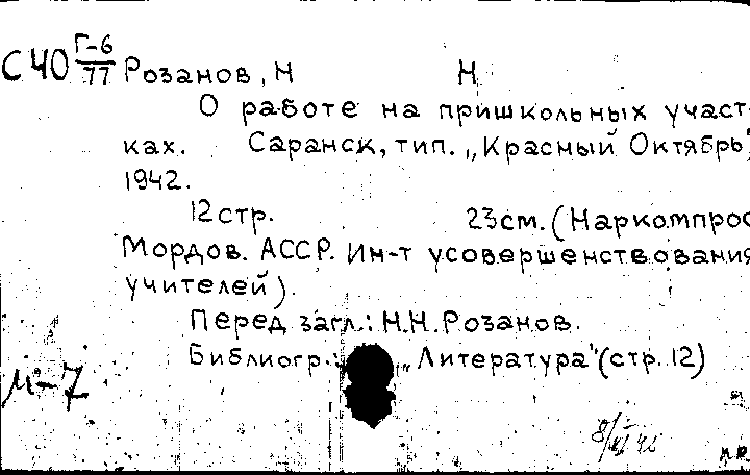 С40 Г-6/77 Розанов, Н Н
О работе на пришкольных участ-
ках. Саранск, тип. „Красный Октябрь",
1942.
12 стр. 23 см. (Наркомпрос
Мордов. АССР. Ин-т усовершенствования
учителей).
Перед загл.: Н.Н. Розанов.
Библиогр.: „Литература" (стр. 12)
М-7